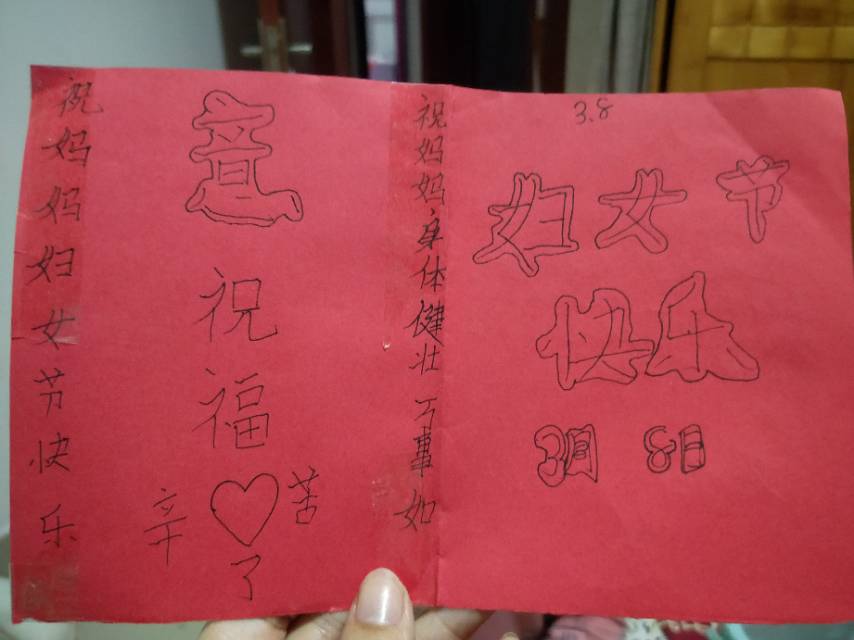 祝妈妈妇女节快乐
祝福
辛苦
了
祝妈妈身体健壮万事如
3.8
妇女节
快乐
3月8日